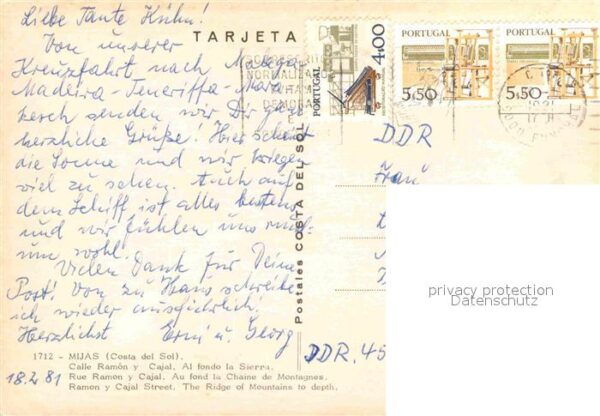 Liebe Tante Kühn!
Von unserer
Kreuzfahrt nach Malaga-
Madeira-Teneriffa-Mara-
kesch senden wir Dir ganz
herzliche Grüße! Hier scheint
die Sonne und wir kriegen
viel zu sehen. Auch auf
dem Schiff ist alles bestens
und wir fühlen uns rund-
um wohl.
Vielen Dank für Deine
Post! Von zu Haus schreibe
ich wieder ausführlich!
Herzlichst Erni u. Georg
1712 - MIJAS (Costa del Sol).
Calle Ramón y Cajal. Al fondo la Sierra.
Rue Ramon y Cajal. Au fond la Chaine de Montagnes.
Ramon y Cajal Street. The Ridge of Mountains to depth.
18.2.81
TARJETA
Postales COSTA DEL SOL
PORTUGAL
4$00
PORTUGAL
5$50
PORTUGAL
5$50
DDR
Frau
DDR. 45
privacy protection
Datenschutz